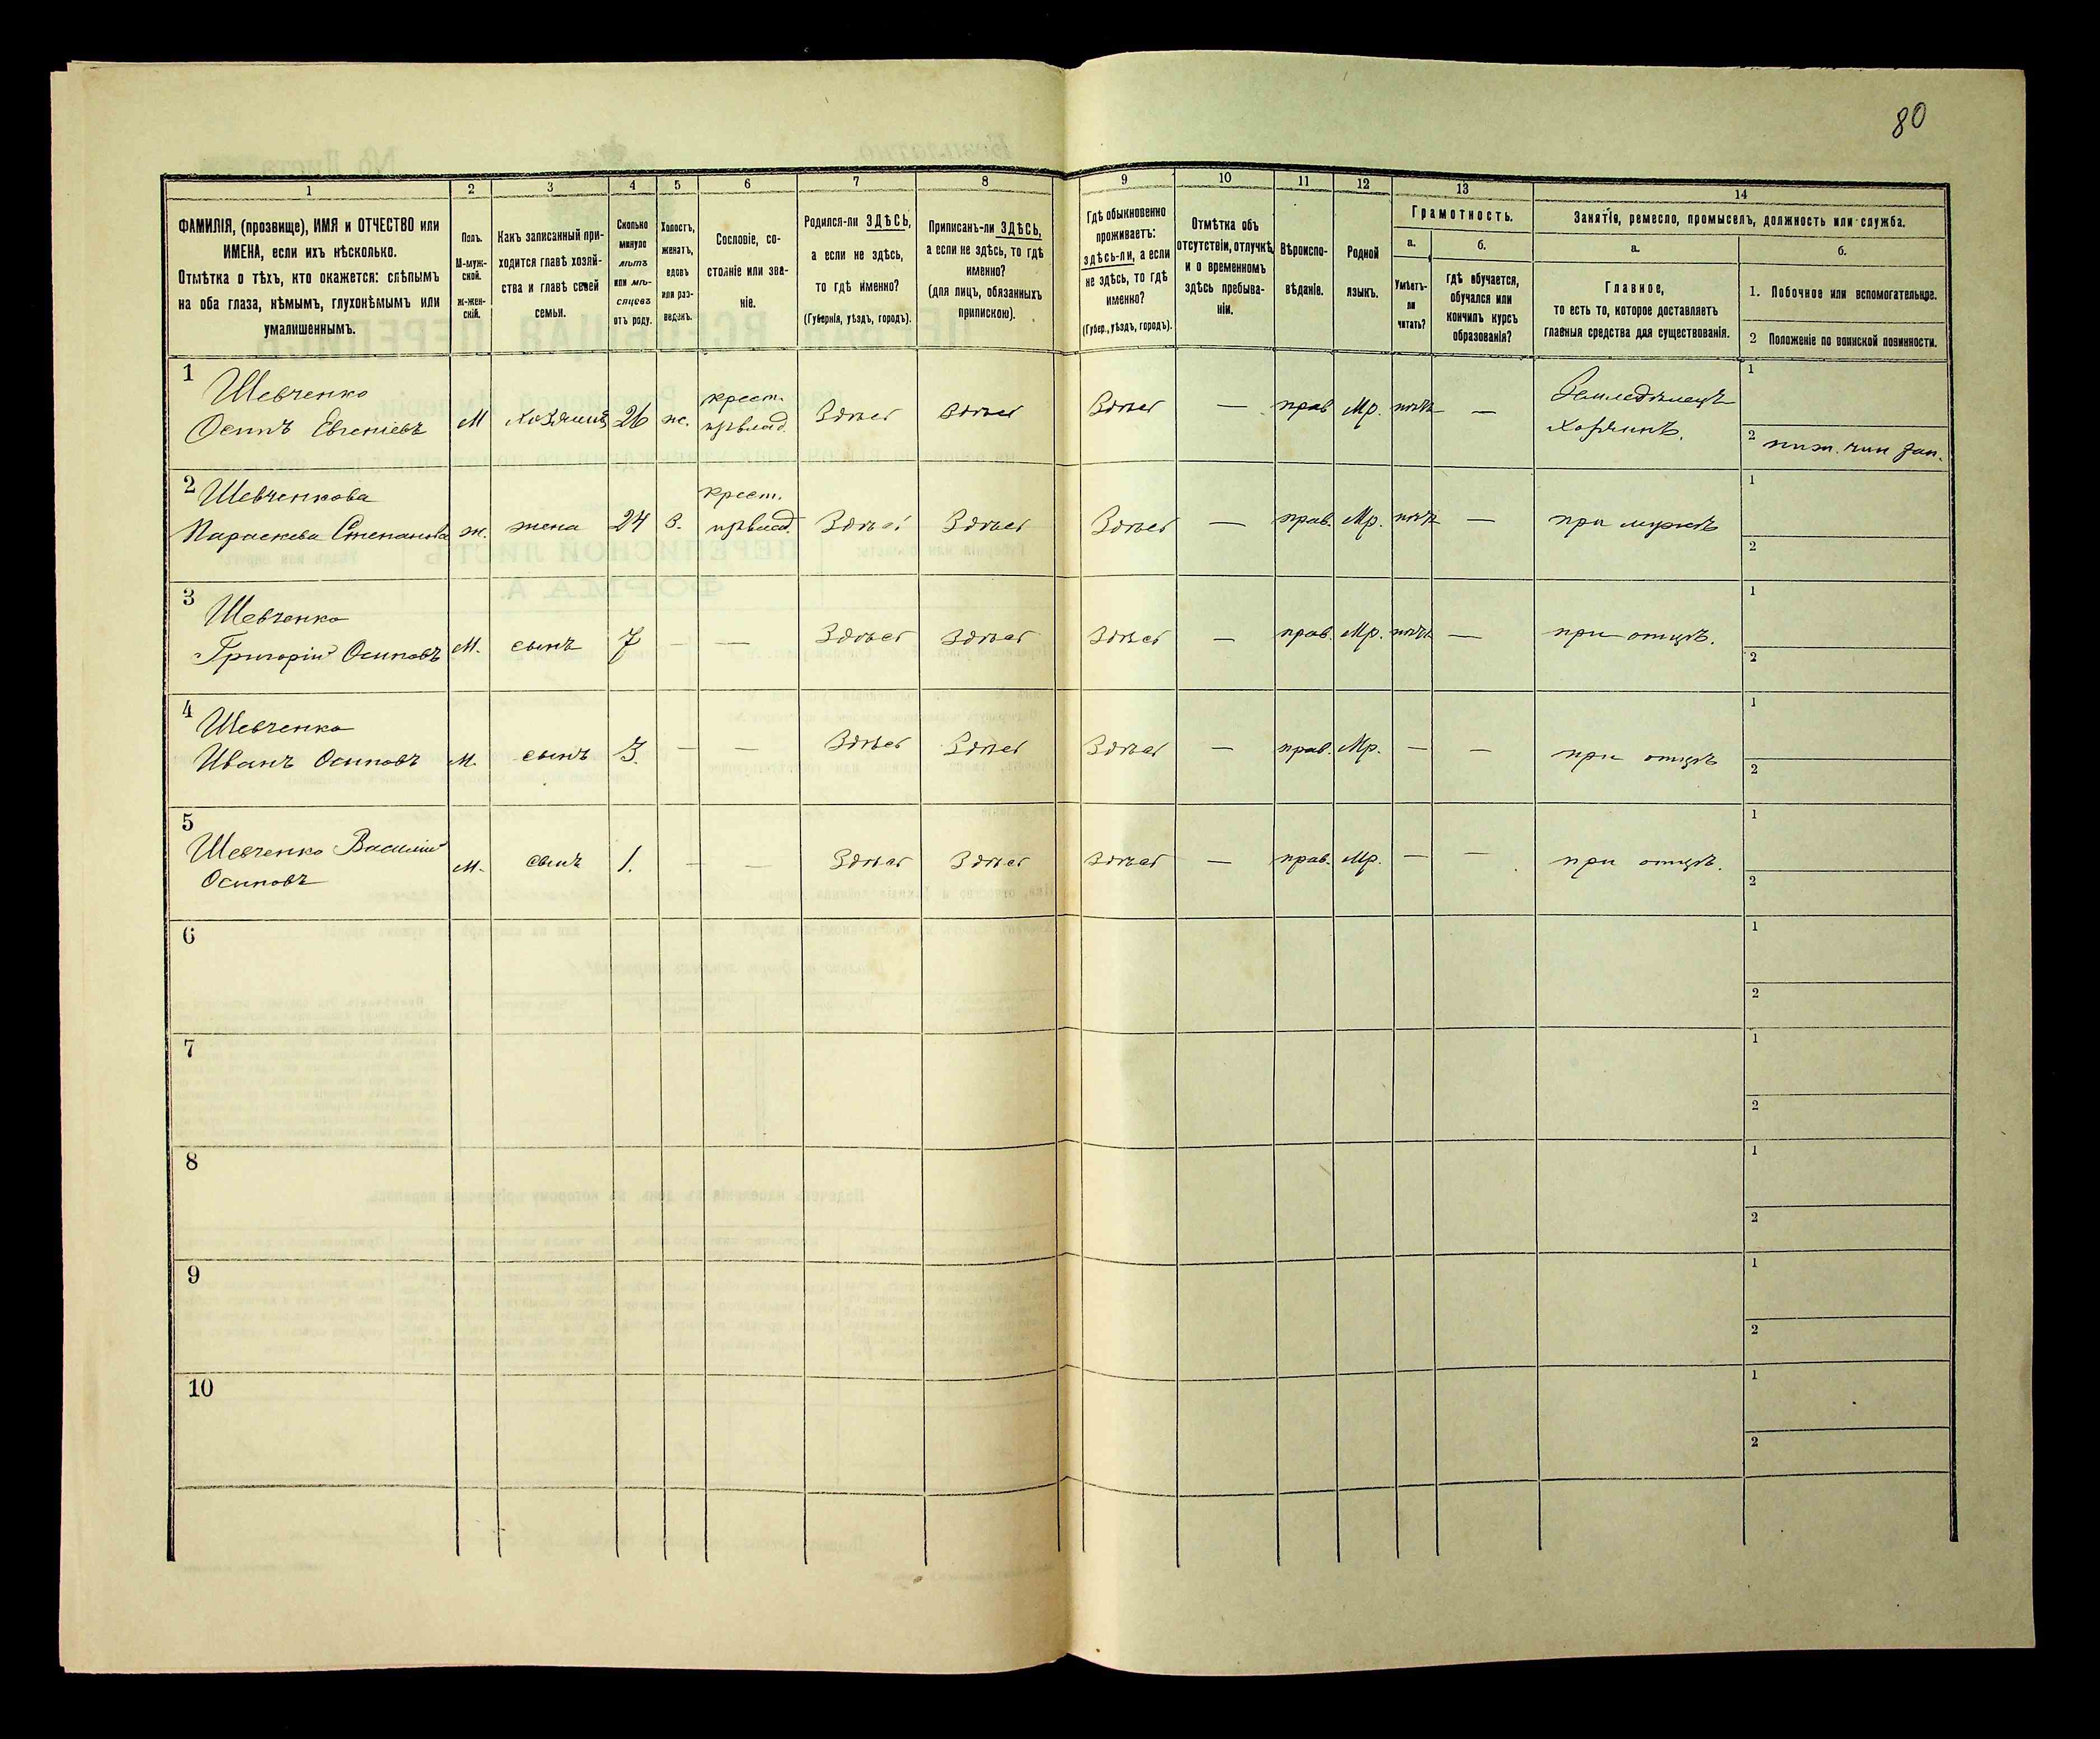 80
1
2
3
4
5
6
7
8
9
10
11
12
13
14
ФАМИЛІЯ, (прозвище), ИМЯ и ОТЧЕСТВО или
ИМЕНА, если ихъ нѣсколько.
Отмѣтка о тѣхъ, кто окажется: слѣпымъ
на оба глаза, нѣмымъ, глухонѣмымъ или
умалишеннымъ.
Полъ.
М-муж-
ской.
ж-жен-
скій.
Какъ записанный при-
ходится главѣ хозяй-
ства и главѣ своей
семьи.
Сколько
минуло
лѣтъ
или мѣ-
сяцевъ
отъ роду.
Холостъ,
женатъ,
вдовъ
или раз-
веденъ.
Сословіе, со-
стояніе или зва-
ніе.
Родился-ли ЗДѢСЬ,
а если не здѣсь,
то гдѣ именно?
(Губернія, уѣздъ, городъ).
Приписанъ-ли ЗДѢСЬ,
а если не здѣсь, то гдѣ
именно?
(для лицъ, обязанныхъ
припискою).
Гдѣ обыкновенно
проживаетъ:
здѣсь-ли, а если
не здѣсь, то гдѣ
именно?
(Губер., уѣздъ, городъ).
Отмѣтка объ
отсутствіи, отлучкѣ
и о временномъ
здѣсь пребыва-
ніи.
Вѣроиспо-
вѣданіе.
Родной
языкъ.
Грамотность.
а.
Умѣетъ-
ли
читать?
б.
гдѣ обучается,
обучался или
кончилъ курсъ
образованія?
Занятіе, ремесло, промыселъ, должность или служба.
а.
Главное,
то есть то, которое доставляетъ
главныя средства для существованія.
б.
1. Побочное или вспомогательное.
2 Положеніе по воинской повинности.
1
Шевченко
Осипъ Евгеніевъ
М
хозяинъ
26
ж.
крест.
Здѣсь
Здѣсь
Здѣсь
—
прав
Мр.
нѣтъ
—
Земледѣлецъ
хозяинъ.
1
2 ниж. чин зап.
2 Шевченкова
Параскева Степанова
ж.
жена
24
З.
крест.
Здѣсь
Здѣсь
Здѣсь
—
прав.
Мр.
нѣтъ
—
при мужѣ
1
2
3
Шевченко
Григорій Осиповъ
М.
сынъ
7
—
—
Здѣсь
Здѣсь
Здѣсь
—
прав.
Мр.
нѣтъ
—
при отцѣ.
1
2
4
Шевченко
Иванъ Осиповъ
М.
сынъ
3.
—
—
Здѣсь
Здѣсь
Здѣсь
—
прав.
Мр.
—
—
при отцѣ
1
2
5
Шевченко Василій
Осиповъ
М.
сынъ
1.
—
—
Здѣсь
Здѣсь
Здѣсь
—
прав.
Мр.
—
—
при отцѣ.
1
2
6
1
2
7
1
2
8
1
2
9
1
2
10
1
2